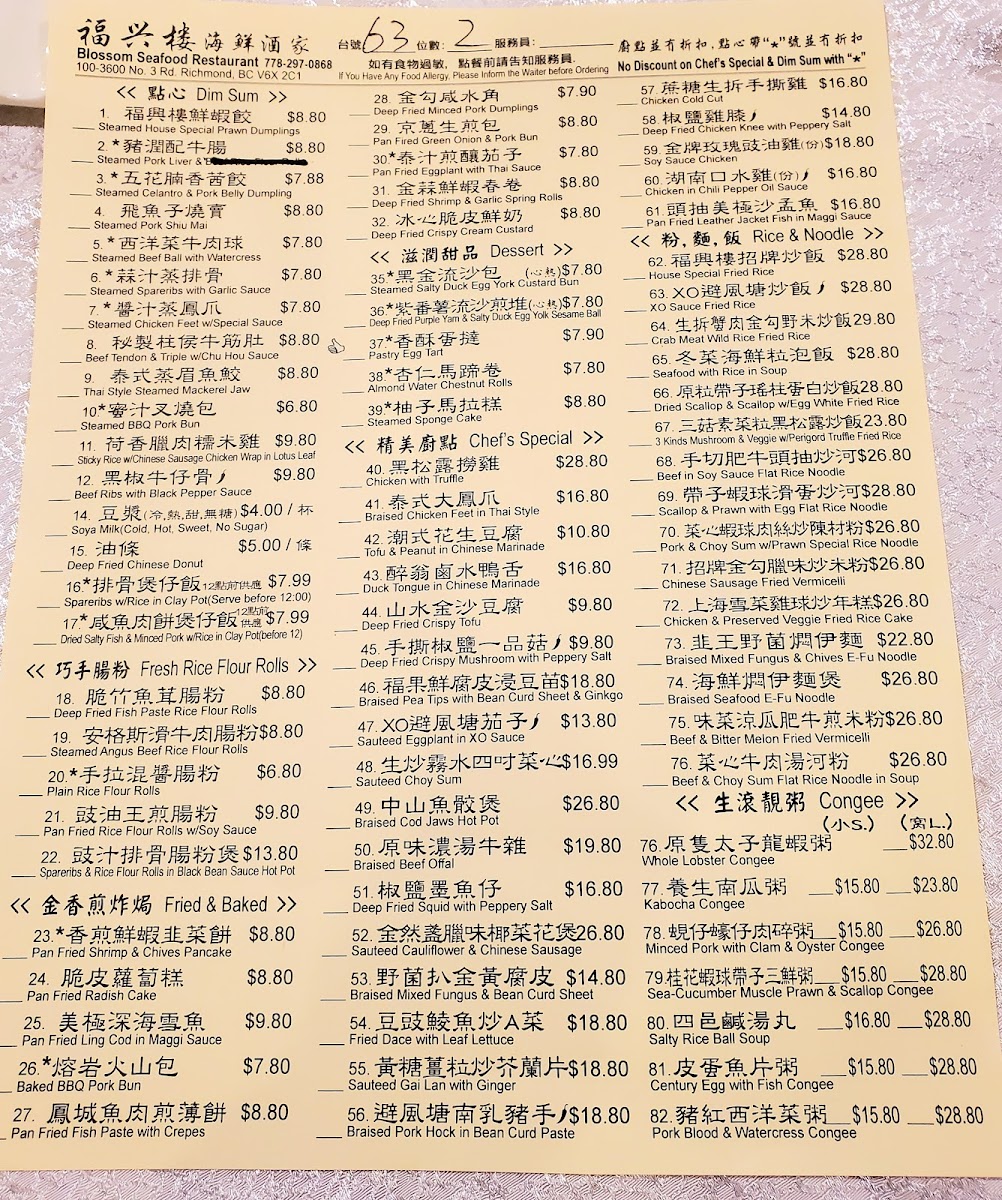 福兴楼 海鮮酒家
Blossom Seafood Restaurant 778-297-0868
100-3600 No. 3 Rd. Richmond, BC V6X 2C1
台號 63 位數: 2 服務員:
如有食物過敏, 點餐前請告知服務員.
If You Have Any Food Allergy, Please Inform the Waiter before Ordering
廚點並冇折扣, 點心帶“*”號並冇折扣
No Discount on Chef's Special & Dim Sum with “*”
<< 點心 Dim Sum >>
1. 福興樓鮮蝦餃 $8.80
Steamed House Special Prawn Dumplings
2. *豬潤配牛腸 $8.80
Steamed Pork Liver &
3. *五花腩香茜餃 $7.88
Steamed Celantro & Pork Belly Dumpling
4. 飛魚子燒賣 $8.80
Steamed Pork Shiu Mai
5. *西洋菜牛肉球 $7.80
Steamed Beef Ball with Watercress
6. *蒜汁蒸排骨 $7.80
Steamed Spareribs with Garlic Sauce
7. *醬汁蒸鳳爪 $7.80
Steamed Chicken Feet w/Special Sauce
8. 秘製柱侯牛筋肚 $8.80
Beef Tendon & Triple w/Chu Hou Sauce
9. 泰式蒸眉魚鮫 $8.80
Thai Style Steamed Mackerel Jaw
10*蜜汁叉燒包 $6.80
Steamed BBQ Pork Bun
11. 荷香臘肉糯米雞 $9.80
Sticky Rice w/Chinese Sausage Chicken Wrap in Lotus Leaf
12. 黑椒牛仔骨 $9.80
Beef Ribs with Black Pepper Sauce
14. 豆漿(冷,熱,甜,無糖) $4.00 / 杯
Soya Milk(Cold, Hot, Sweet, No Sugar)
15. 油條 $5.00 / 條
Deep Fried Chinese Donut
16*排骨煲仔飯 12點前供應 $7.99
Spareribs w/Rice in Clay Pot(Serve before 12:00)
17.*咸魚肉餅煲仔飯 12點前供應 $7.99
Dried Salty Fish & Minced Pork w/Rice in Clay Pot(before 12)
<< 巧手腸粉 Fresh Rice Flour Rolls >>
18. 脆竹魚茸腸粉 $8.80
Deep Fried Fish Paste Rice Flour Rolls
19. 安格斯滑牛肉腸粉 $8.80
Steamed Angus Beef Rice Flour Rolls
20.*手拉混醬腸粉 $6.80
Plain Rice Flour Rolls
21. 豉油王煎腸粉 $9.80
Pan Fried Rice Flour Rolls w/Soy Sauce
22. 豉汁排骨腸粉煲 $13.80
Spareribs & Rice Flour Rolls in Black Bean Sauce Hot Pot
<< 金香煎炸焗 Fried & Baked >>
23.*香煎鮮蝦韭菜餅 $8.80
Pan Fried Shrimp & Chives Pancake
24. 脆皮蘿蔔糕 $8.80
Pan Fried Radish Cake
25. 美極深海雪魚 $9.80
Pan Fried Ling Cod in Maggi Sauce
26.*熔岩火山包 $7.80
Baked BBQ Pork Bun
27. 鳳城魚肉煎薄餅 $8.80
Pan Fried Fish Paste with Crepes
28. 金勾咸水角 $7.90
Deep Fried Minced Pork Dumplings
29. 京蔥生煎包 $8.80
Pan Fired Green Onion & Pork Bun
30*泰汁煎釀茄子 $7.80
Pan Fried Eggplant with Thai Sauce
31. 金蒜鮮蝦春卷 $8.80
Deep Fried Shrimp & Garlic Spring Rolls
32. 冰心脆皮鮮奶 $8.80
Deep Fried Crispy Cream Custard
<< 滋潤甜品 Dessert >>
35*黑金流沙包 (心熱) $7.80
Steamed Salty Duck Egg York Custard Bun
36.*紫番薯流沙煎堆(心熱) $7.80
Deep Fried Purple Yam & Salty Duck Egg Yolk Sesame Ball
37*香酥蛋撻 $7.90
Pastry Egg Tart
38*杏仁馬蹄卷 $7.80
Almond Water Chestnut Rolls
39*柚子馬拉糕 $8.80
Steamed Sponge Cake
<< 精美廚點 Chef's Special >>
40. 黑松露撈雞 $28.80
Chicken with Truffle
41. 泰式大鳳爪 $16.80
Braised Chicken Feet in Thai Style
42. 潮式花生豆腐 $10.80
Tofu & Peanut in Chinese Marinade
43. 醉翁鹵水鴨舌 $16.80
Duck Tongue in Chinese Marinade
44. 山水金沙豆腐 $9.80
Deep Fried Crispy Tofu
45. 手撕椒鹽一品菇 $9.80
Deep Fried Crispy Mushroom with Peppery Salt
46. 福果鮮腐皮浸豆苗 $18.80
Braised Pea Tips with Bean Curd Sheet & Ginkgo
47. XO避風塘茄子 $13.80
Sauteed Eggplant in XO Sauce
48. 生炒霧水四吋菜心 $16.99
Sauteed Choy Sum
49. 中山魚骹煲 $26.80
Braised Cod Jaws Hot Pot
50. 原味濃湯牛雜 $19.80
Braised Beef Offal
51. 椒鹽墨魚仔 $16.80
Deep Fried Squid with Peppery Salt
52. 金然盞臘味椰菜花煲 26.80
Sauteed Cauliflower & Chinese Sausage
53. 野菌扒金黃腐皮 $14.80
Braised Mixed Fungus & Bean Curd Sheet
54. 豆豉鯪魚炒A菜 $18.80
Fried Dace with Leaf Lettuce
55. 黃糖薑粒炒芥蘭片 $18.80
Sauteed Gai Lan with Ginger
56. 避風塘南乳豬手 $18.80
Braised Pork Hock in Bean Curd Paste
57. 蔗糖生拆手撕雞 $16.80
Chicken Cold Cut
58. 椒鹽雞膝 $14.80
Deep Fried Chicken Knee with Peppery Salt
59. 金牌玫瑰豉油雞(份) $18.80
Soy Sauce Chicken
60. 湖南口水雞(份) $16.80
Chicken in Chili Pepper Oil Sauce
61. 頭抽美極沙孟魚 $16.80
Pan Fried Leather Jacket Fish in Maggi Sauce
<< 粉, 麵, 飯 Rice & Noodle >>
62. 福興樓招牌炒飯 $28.80
House Special Fried Rice
63. XO避風塘炒飯 $28.80
XO Sauce Fried Rice
64. 生拆蟹肉金勾野米炒飯 29.80
Crab Meat Wild Rice Fried Rice
65. 冬菜海鮮粒泡飯 $28.80
Seafood with Rice in Soup
66. 原粒帶子瑤柱蛋白炒飯 28.80
Dried Scallop & Scallop w/Egg White Fried Rice
67. 三菇素菜粒黑松露炒飯 23.80
3 Kinds Mushroom & Veggie w/Perigord Truffle Fried Rice
68. 手切肥牛頭抽炒河 $26.80
Beef in Soy Sauce Flat Rice Noodle
69. 帶子蝦球滑蛋炒河 $28.80
Scallop & Prawn with Egg Flat Rice Noodle
70. 菜心蝦球肉絲炒陳村粉 $26.80
Pork & Choy Sum w/Prawn Special Rice Noodle
71. 招牌金勾臘味炒米粉 $26.80
Chinese Sausage Fried Vermicelli
72. 上海雪菜雞球炒年糕 $26.80
Chicken & Preserved Veggie Fried Rice Cake
73. 韭王野菌燜伊麵 $22.80
Braised Mixed Fungus & Chives E-Fu Noodle
74. 海鮮燜伊麵煲 $26.80
Braised Seafood E-Fu Noodle
75. 味菜涼瓜肥牛煎米粉 $26.80
Beef & Bitter Melon Fried Vermicelli
76. 菜心牛肉湯河粉 $26.80
Beef & Choy Sum Flat Rice Noodle in Soup
<< 生滾靚粥 Congee >>
(小S.) (窩L.)
76. 原隻太子龍蝦粥 $32.80
Whole Lobster Congee
77. 養生南瓜粥 $15.80 $23.80
Kabocha Congee
78. 蜆仔蠔仔肉碎粥 $15.80 $26.80
Minced Pork with Clam & Oyster Congee
79. 桂花蝦球帶子三鮮粥 $15.80 $28.80
Sea-Cucumber Muscle Prawn & Scallop Congee
80. 四邑鹹湯丸 $16.80 $28.80
Salty Rice Ball Soup
81. 皮蛋魚片粥 $15.80 $28.80
Century Egg with Fish Congee
82. 豬紅西洋菜粥 $15.80 $28.80
Pork Blood & Watercress Congee